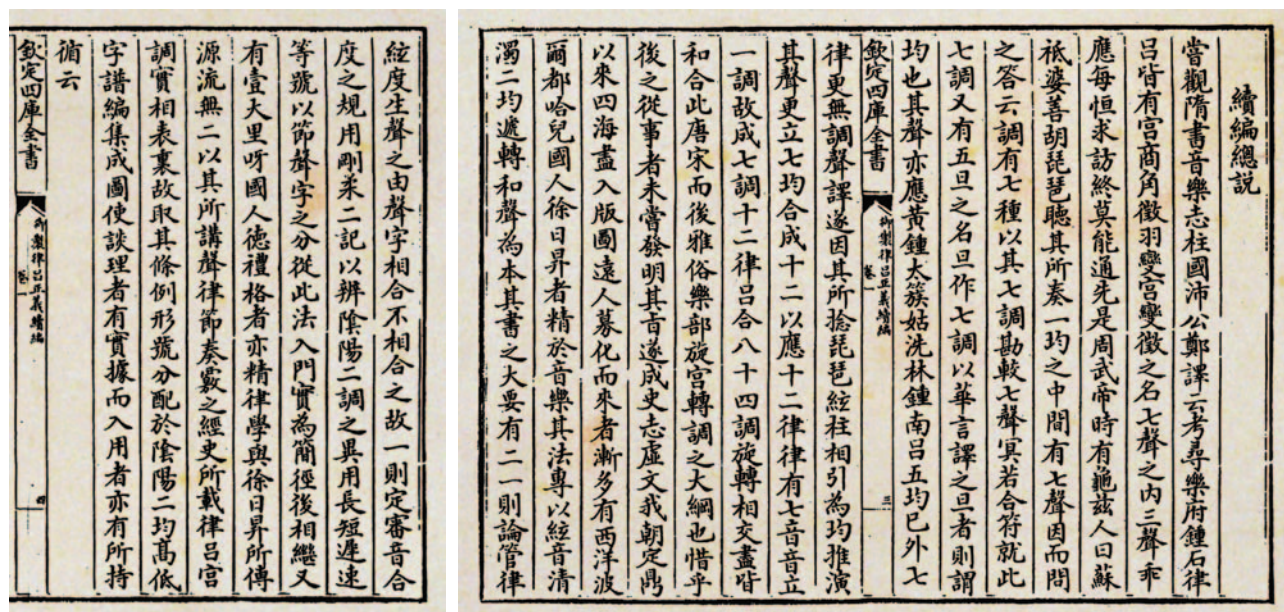 續編總說
嘗觀隋書音樂志柱國沛公鄭譯云考尋樂府鍾石律
呂皆有宮商角徵羽變宮變徵之名七聲之內三聲乖
應每恒求訪終莫能通先是周武帝時有龜茲人曰蘇
祗婆善胡琵琶聽其所奏一均之中間有七聲因而問
之答云調有七種以其七調勘較七聲冥若合符就此
七調又有五旦之名旦作七調以華言譯之旦者則謂
均也其聲亦應黃鍾太簇姑洗林鍾南呂五均已外七
欽定四庫全書
御製律呂正義續編
卷一
三
律更無調聲譯遂因其所捻琵琶絃柱相引為均推演
其聲更立七均合成十二以應十二律律有七音音立
一調故成七調十二律呂合八十四調旋轉相交盡皆
和合此唐宋而後雅俗樂部旋宮轉調之大綱也惜乎
後之從事者未嘗發明其旨遂成史志虛文我朝定鼎
以來四海盡入版圖遠人募化而來者漸多有西洋波
爾都哈兒國人徐日昇者精於音樂其法專以絃音清
濁二均遞轉和聲為本其書之大要有二一則論管律
絃度生聲之由聲字相合不相合之故一則定審音合
度之規用剛柔二記以辨陰陽二調之異用長短遲速
等號以節聲字之分從此法入門實為簡徑後相繼又
有壹大里呀國人德禮格者亦精律學與徐日昇所傳
源流無二以其所講聲律節奏覈之經史所載律呂宮
調實相表裏故取其條例形號分配於陰陽二均高低
字譜編集成圖使談理者有實據而入用者亦有所持
循云
欽定四庫全書
御製律呂正義續編
卷一
四